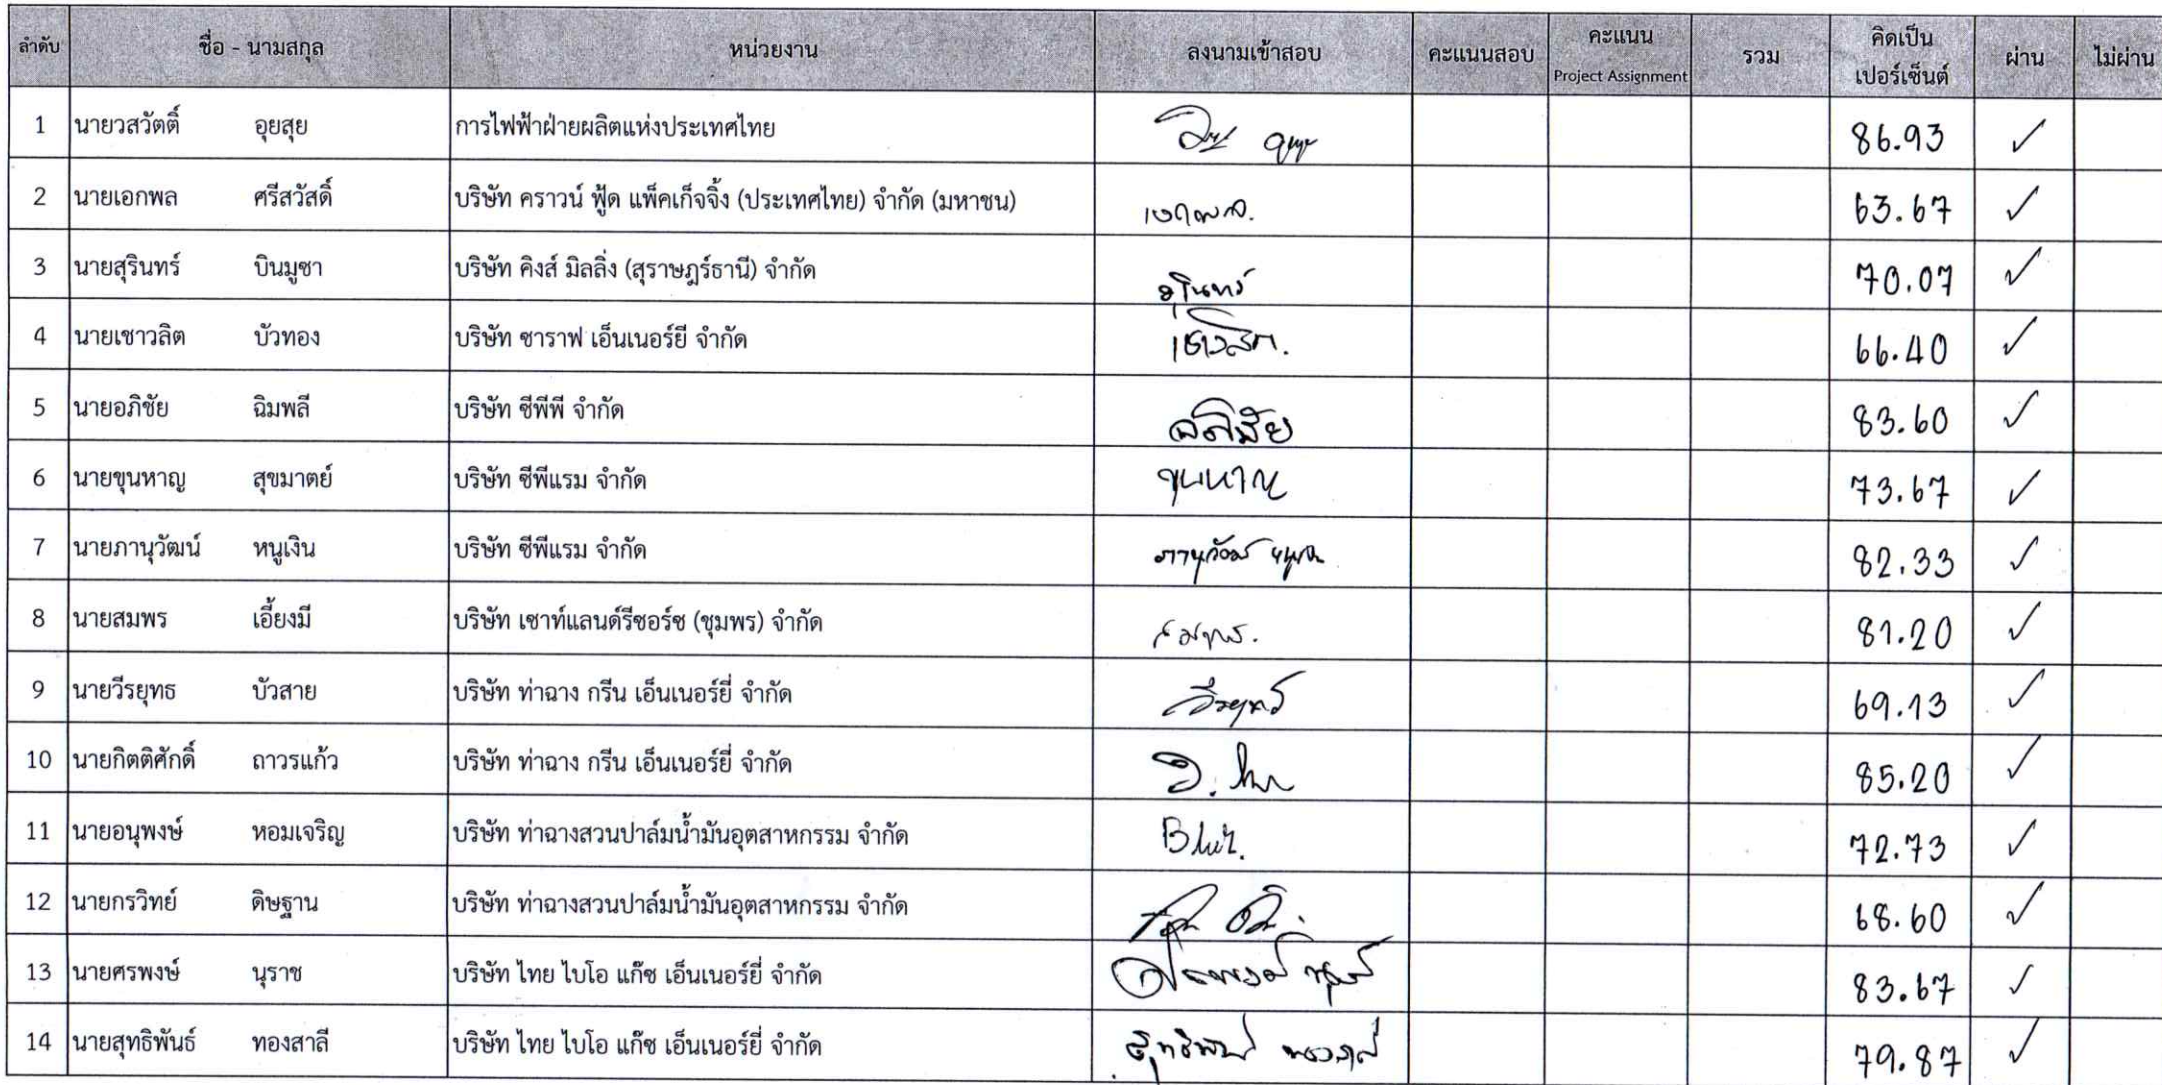 ลำดับ ชื่อ - นามสกุล หน่วยงาน ลงนามเข้าสอบ คะแนนสอบ คะแนน Project Assignment รวม คิดเป็น เปอร์เซ็นต์ ผ่าน ไม่ผ่าน
1 นายวสวัตติ์ อุยสุย การไฟฟ้าฝ่ายผลิตแห่งประเทศไทย 86.93 ✓
2 นายเอกพล ศรีสวัสดิ์ บริษัท คราวน์ ฟู้ด แพ็คเก็จจิ้ง (ประเทศไทย) จำกัด (มหาชน) เอกพล. 63.67 ✓
3 นายสุรินทร์ บินมูซา บริษัท คิงส์ มิลลิ่ง (สุราษฎร์ธานี) จำกัด สุรินทร์ 70.07 ✓
4 นายเชาวลิต บัวทอง บริษัท ซาราฟ เอ็นเนอร์ยี จำกัด เชาวลิต. 66.40 ✓
5 นายอภิชัย ฉิมพลี บริษัท ซีพีพี จำกัด อภิชัย 83.60 ✓
6 นายขุนหาญ สุขมาตย์ บริษัท ซีพีแรม จำกัด ขุนหาญ 73.67 ✓
7 นายภานุวัฒน์ หนูเงิน บริษัท ซีพีแรม จำกัด 82.33 ✓
8 นายสมพร เอี้ยงมี บริษัท เซาท์แลนด์รีซอร์ซ (ชุมพร) จำกัด สมพร. 81.20 ✓
9 นายวีรยุทธ บัวสาย บริษัท ท่าฉาง กรีน เอ็นเนอร์ยี่ จำกัด วีรยุทธ 69.13 ✓
10 นายกิตติศักดิ์ ถาวรแก้ว บริษัท ท่าฉาง กรีน เอ็นเนอร์ยี่ จำกัด 85.20 ✓
11 นายอนุพงษ์ หอมเจริญ บริษัท ท่าฉางสวนปาล์มน้ำมันอุตสาหกรรม จำกัด 72.73 ✓
12 นายกรวิทย์ ดิษฐาน บริษัท ท่าฉางสวนปาล์มน้ำมันอุตสาหกรรม จำกัด 68.60 ✓
13 นายศรพงษ์ นุราช บริษัท ไทย ไบโอ แก๊ซ เอ็นเนอร์ยี่ จำกัด 83.67 ✓
14 นายสุทธิพันธ์ ทองสาลี บริษัท ไทย ไบโอ แก๊ซ เอ็นเนอร์ยี่ จำกัด สุทธิพันธ์ ทองสาลี 79.87 ✓